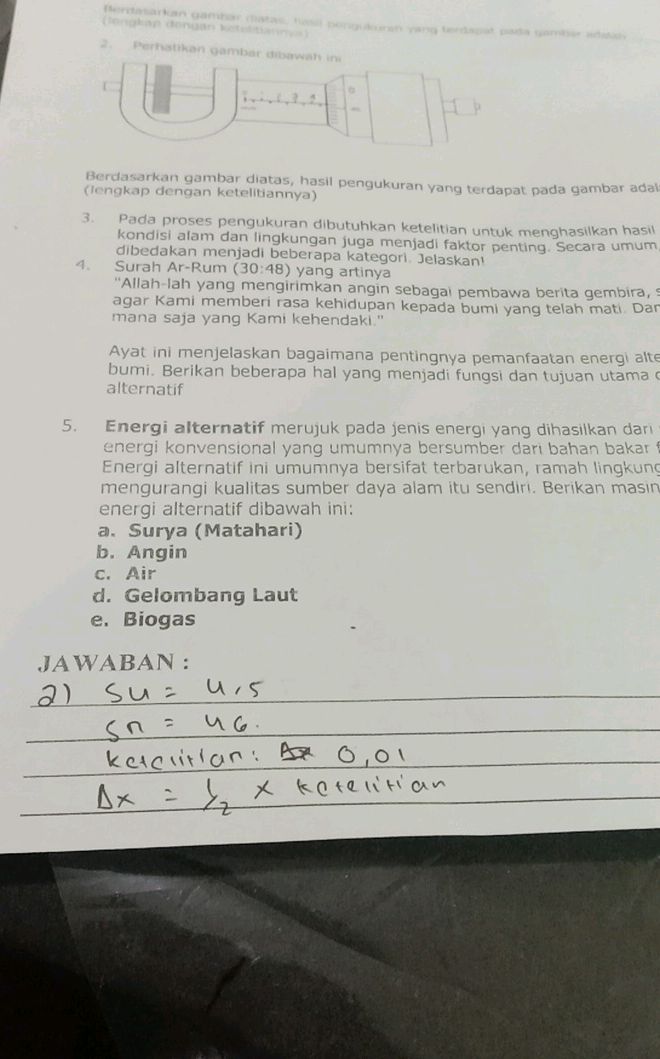 Berdasarkan gambar diatas, hasil pengukuran yang terdapat pada gambar adalah
(lengkap dengan ketelitiannya)
2. Perhatikan gambar dibawah ini
Berdasarkan gambar diatas, hasil pengukuran yang terdapat pada gambar adal
(lengkap dengan ketelitiannya)
3. Pada proses pengukuran dibutuhkan ketelitian untuk menghasilkan hasil
kondisi alam dan lingkungan juga menjadi faktor penting. Secara umum
dibedakan menjadi beberapa kategori. Jelaskan!
4. Surah Ar-Rum (30:48) yang artinya
"Allah-lah yang mengirimkan angin sebagai pembawa berita gembira, s
agar Kami memberi rasa kehidupan kepada bumi yang telah mati. Dar
mana saja yang Kami kehendaki."
Ayat ini menjelaskan bagaimana pentingnya pemanfaatan energi alte
bumi. Berikan beberapa hal yang menjadi fungsi dan tujuan utama
alternatif
5. Energi alternatif merujuk pada jenis energi yang dihasilkan dari
energi konvensional yang umumnya bersumber dari bahan bakar f
Energi alternatif ini umumnya bersifat terbarukan, ramah lingkung
mengurangi kualitas sumber daya alam itu sendiri. Berikan masin
energi alternatif dibawah ini:
a. Surya (Matahari)
b. Angin
c. Air
d. Gelombang Laut
e. Biogas
JAWABAN :
2) Su = 4,5
Sn = 46.
ketelitian: 0,01
Δx = 1/2 x ketelitian